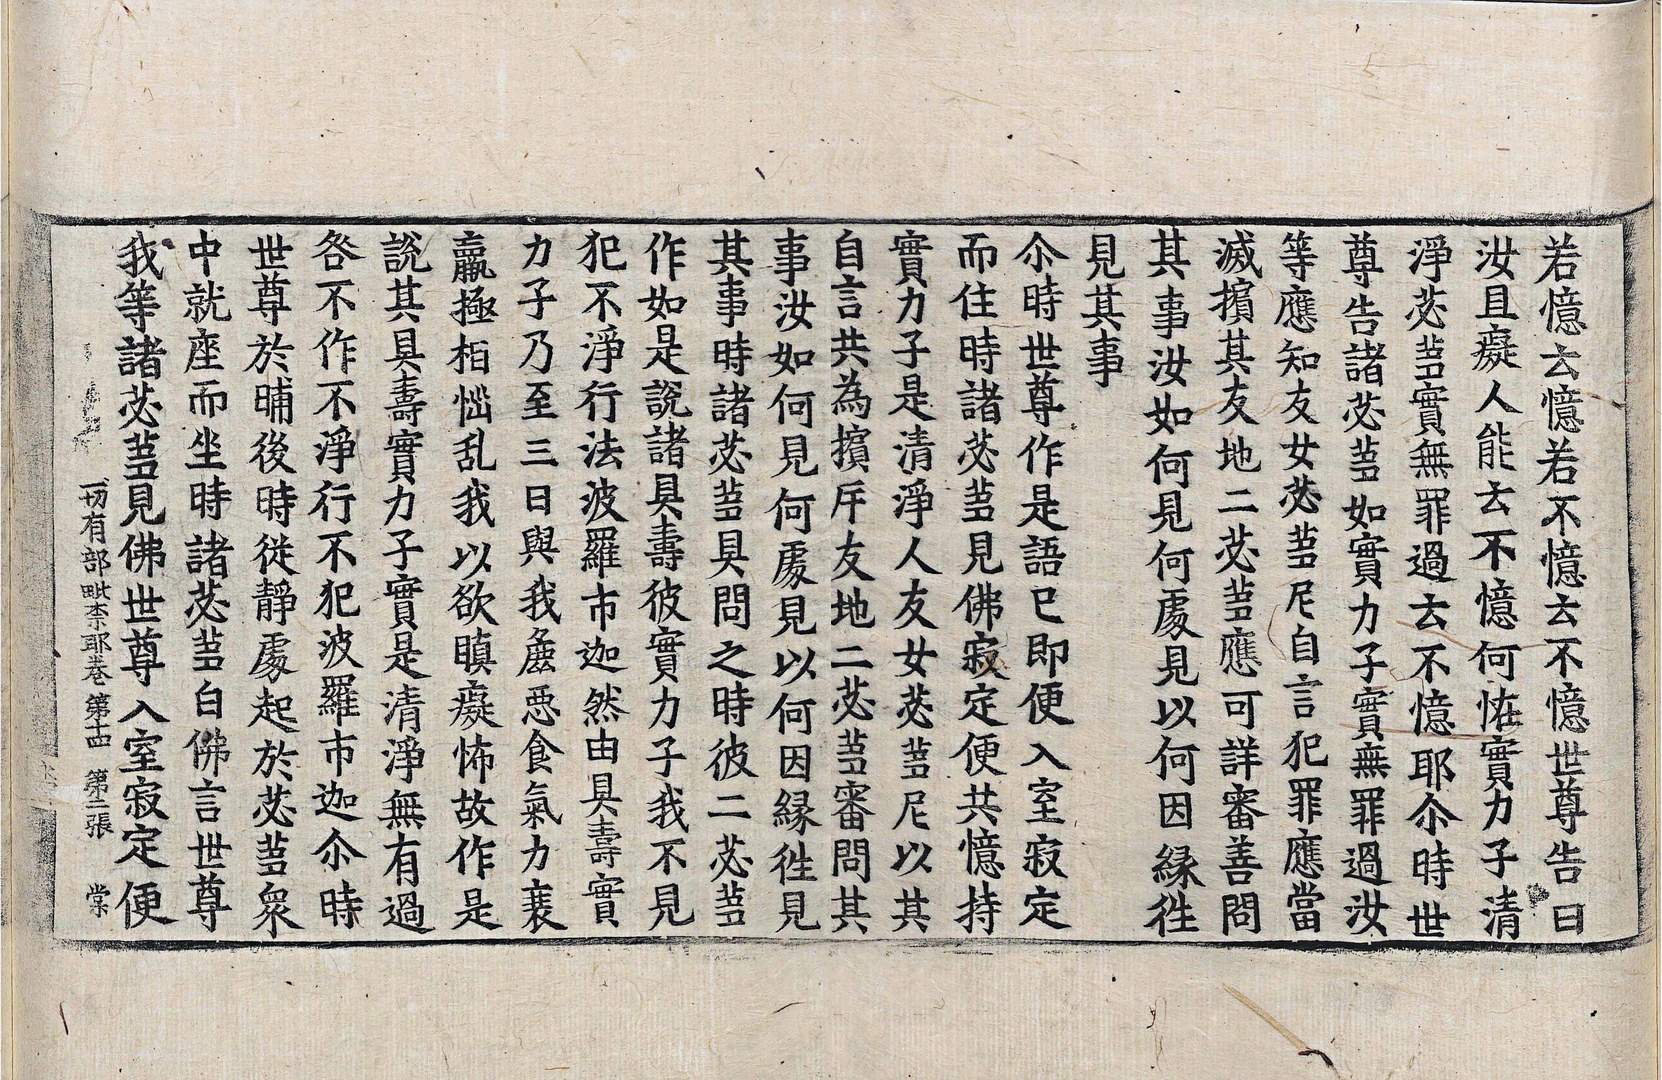 若憶云憶若不憶云不憶世尊告曰
汝且癡人能云不憶何恠實力子清
淨苾蒭實無罪過云不憶耶尒時世
尊告諸苾蒭如實力子實無罪過汝
等應知友女苾蒭尼自言犯罪應當
滅擯其友地二苾蒭應可詳審善問
其事汝如何見何處見以何因緣徃
見其事
尒時世尊作是語已即便入室寂定
而住時諸苾蒭見佛寂定便共憶持
實力子是清淨人友女苾蒭尼以其
自言共為擯斥友地二苾蒭審問其
事汝如何見何處見以何因緣徃見
其事時諸苾蒭具問之時彼二苾蒭
作如是說諸具壽彼實力子我不見
犯不淨行法波羅市迦然由具壽實
力子乃至三日與我麁惡食氣力衰
羸極相惱乱我以欲瞋癡怖故作是
說其具壽實力子實是清淨無有過
咎不作不淨行不犯波羅市迦尒時
世尊於晡後時從靜處起於苾蒭眾
中就座而坐時諸苾蒭白佛言世尊
我等諸苾蒭見佛世尊入室寂定便
一切有部毗柰耶卷第十四 第二張 棠